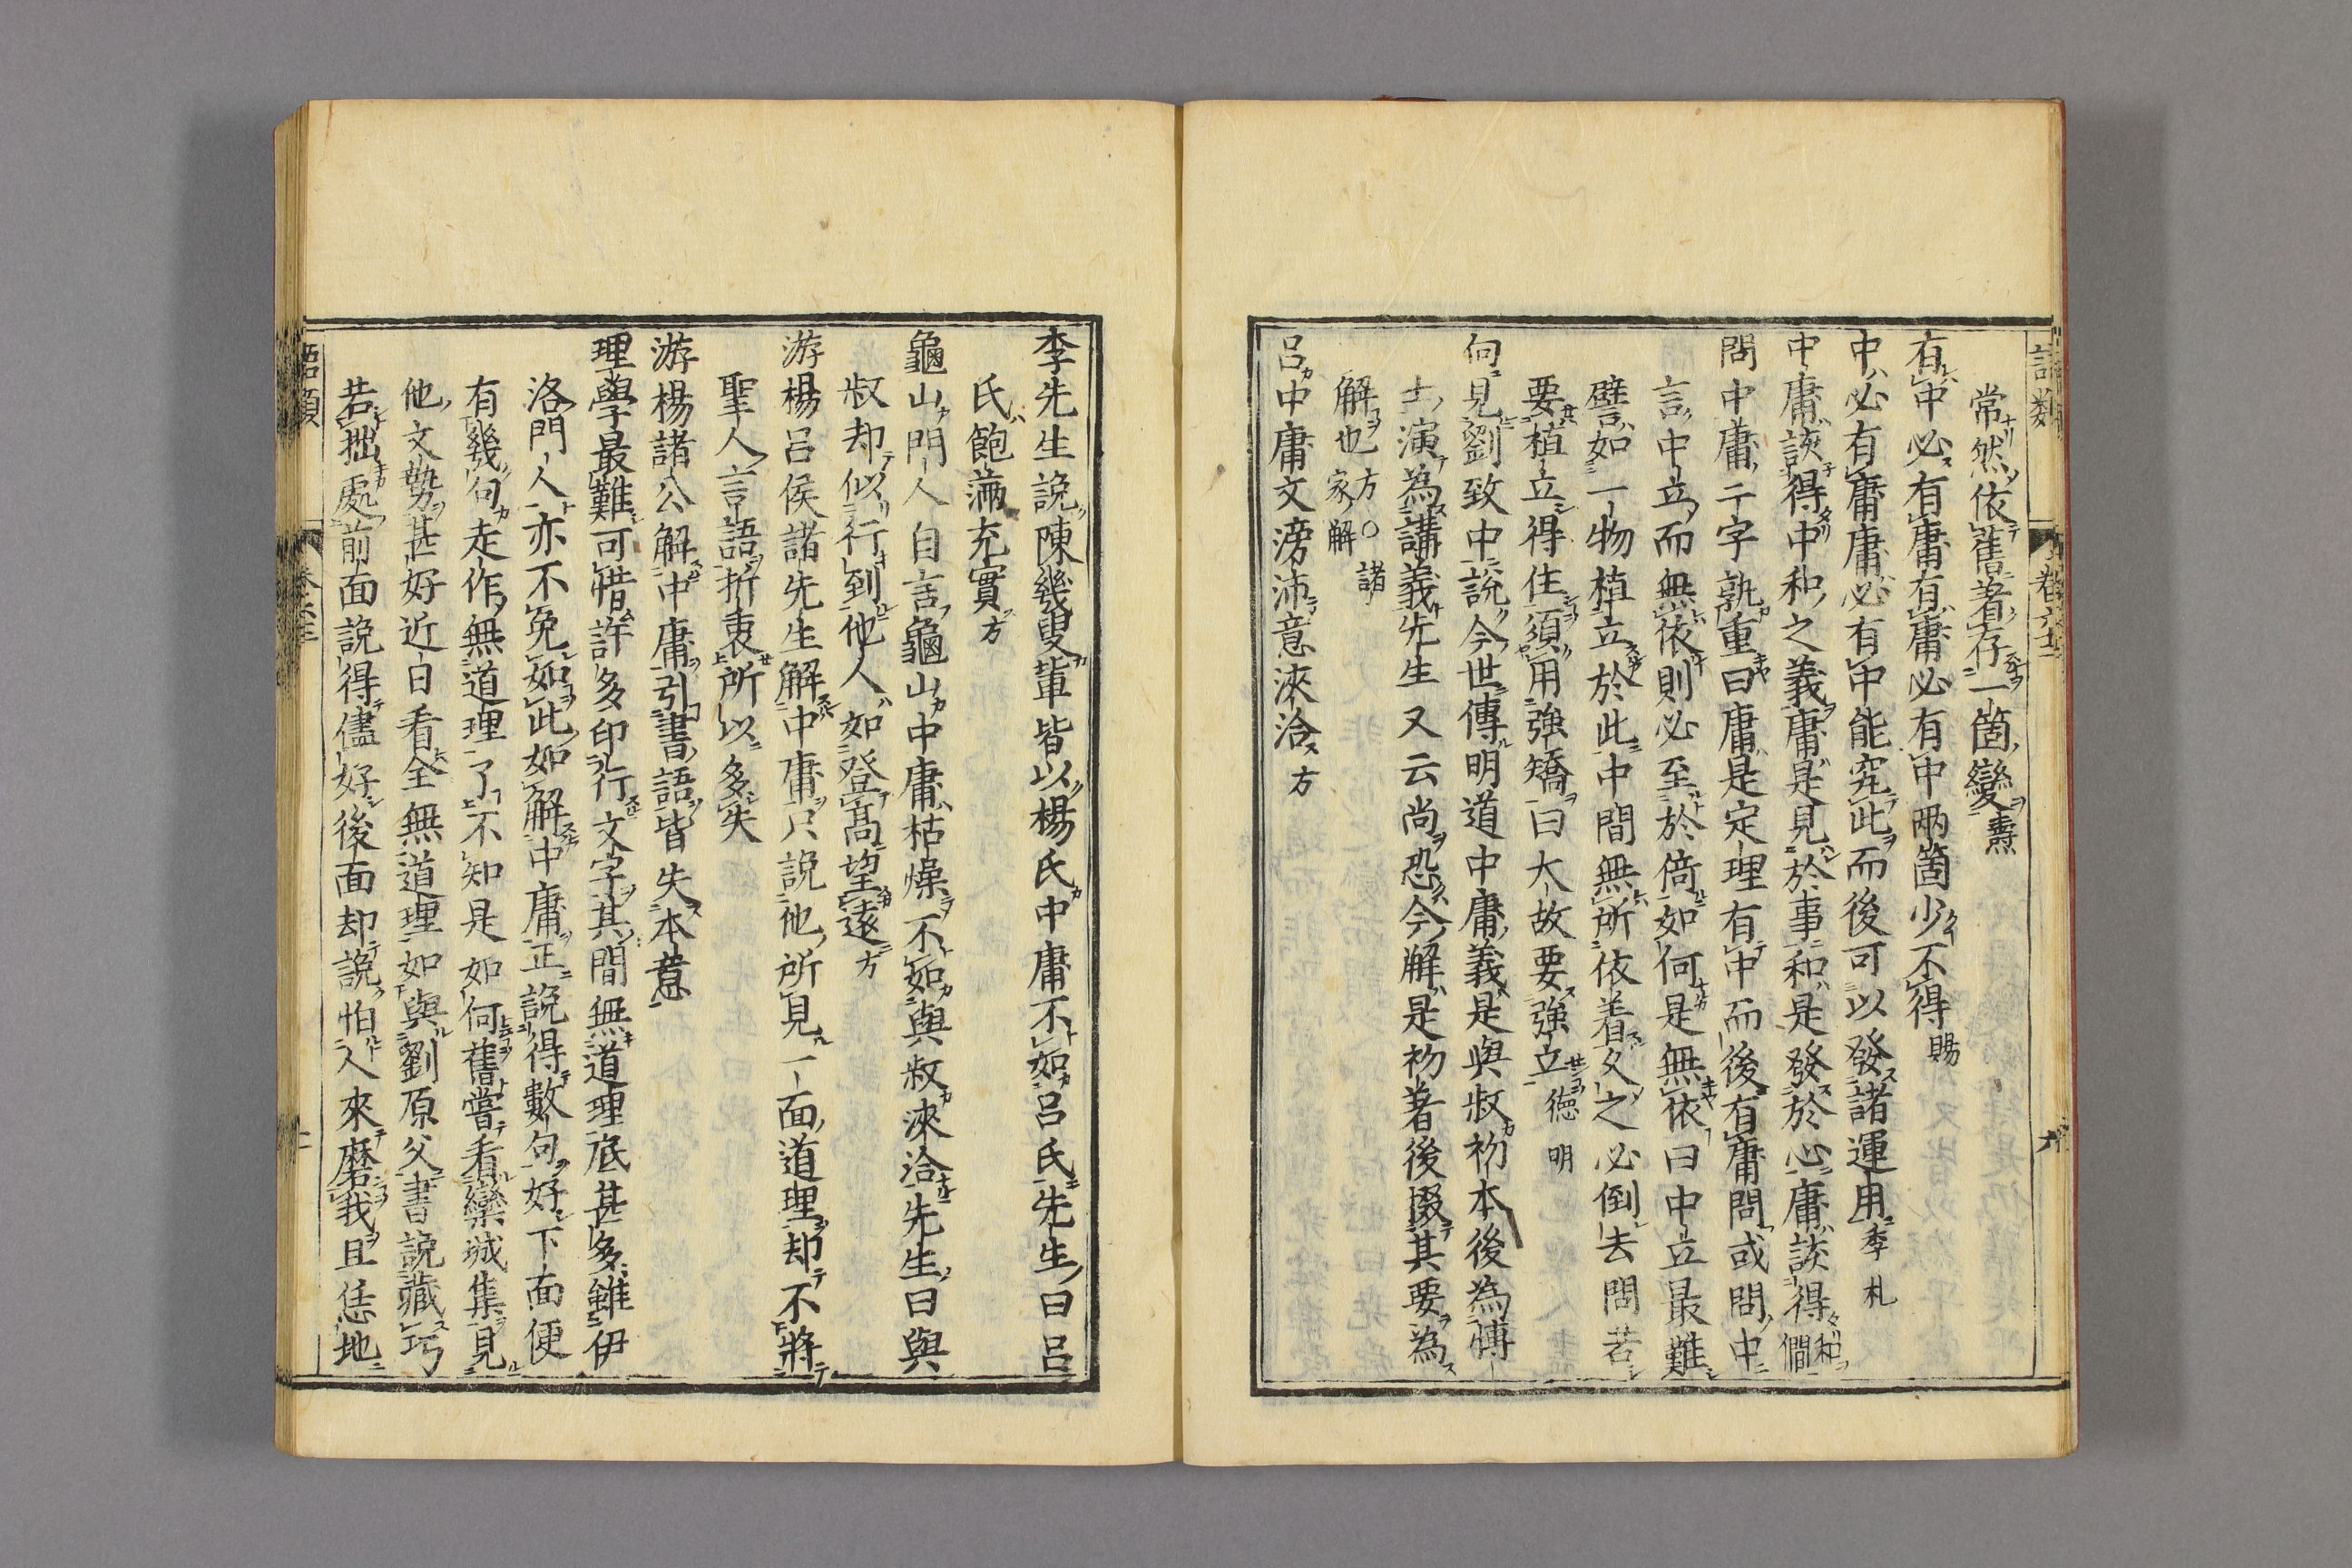 語類
卷六十二
常然依舊著存一箇變燾
有中必有庸有庸必有中兩箇少不得賜
中必有庸庸必有中能究此而後可以發諸運用季札
中庸該得中和之義庸是見於事和是發於心庸該得和僩
問中庸二字孰重曰庸是定理有中而後有庸問或問中
言中立而無依則必至於倚如何是無依曰中立最難
譬如一物植立於此中間無所依着久之必倒去問若
要植立得住須用強矯曰大故要強立德明
向見劉致中說今世傳明道中庸義是與叔初本後為博
士演為講義先生又云尚恐今解是初著後掇其要為
解也方○諸
家解
呂中庸文滂沛意浹洽方
李先生說陳幾叟輩皆以楊氏中庸不如呂氏先生曰呂
氏飽滿充實方
龜山門人自言龜山中庸枯燥不如與叔浹洽先生曰與
叔却似行到他人如登高望遠方
游楊呂侯諸先生解中庸只說他所見一面道理却不將
聖人言語折衷所以多失
游楊諸公解中庸引書語皆失本意
理學最難可惜許多印行文字其間無道理底甚多雖伊
洛門人亦不免如此如解中庸正說得數句好下面便
有幾句走作無道理了不知是如何舊嘗看欒城集見
他文勢甚好近日看全無道理如與劉原父書說藏巧
若拙處前面說得儘好後面却說怕人來磨我且恁地
語類